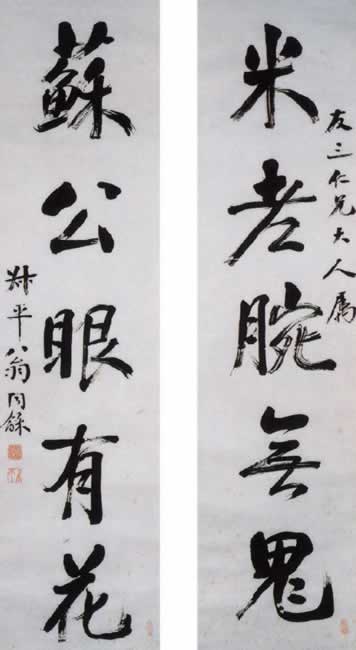 友三仁兄大人属
米老腕無鬼
蘇公眼有花
叔平翁同龢